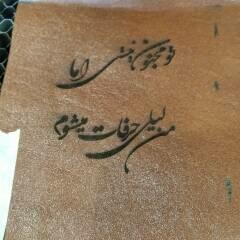 تو مجنون نیستی اما
من لیلی حرفات میشوم